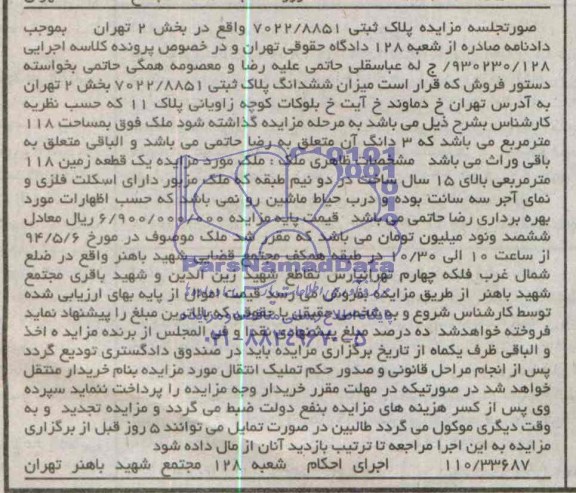 صورتجلسه مزایده پلاک ثبتی ۷۰۲۲/۸۸۵۱ واقع در بخش ۲ تهران بموجب
دادنامه صادره از شعبه ۱۲۸ دادگاه حقوقی تهران و در خصوص پرونده کلاسه اجرایی
۹۳۰۲۳۰/۱۲۸/ ج له عباسقلی حاتمی علیه رضا و معصومه همگی حاتمی بخواسته
دستور فروش که قرار است میزان ششدانگ پلاک ثبتی ۷۰۲۲/۸۸۵۱ بخش ۲ تهران
به آدرس تهران خ دماوند خ آیت خ بلوکات کوچه زاویانی پلاک ۱۱ که حسب نظریه
کارشناس بشرح ذیل می باشد به مرحله مزایده گذاشته شود ملک فوق بمساحت ۱۱۸
مترمربع می باشد که ۳ دانگ آن متعلق به رضا حاتمی می باشد و الباقی متعلق به
باقی وراث می باشد مشخصات ظاهری ملک : ملک مورد مزایده یک قطعه زمین ۱۱۸
مترمربعی بالای ۱۵ سال ساخت در دو نیم طبقه که ملک مزبور دارای اسکلت فلزی و
نمای آجر سه سانت بوده و درب حیاط ماشین رو نمی باشد که حسب اظهارات مورد
بهره برداری رضا حاتمی می باشد قیمت پایه مزایده ۶/۹۰۰/۰۰۰/۰۰۰ ریال معادل
ششصد ونود میلیون تومان می باشد که مقرر شد ملک موصوف در مورخ ۹۴/۵/۶
از ساعت ۱۰ الی ۱۰/۳۰ در طبقه همکف مجتمع قضایی شهید باهنر واقع در ضلع
شمال غرب فلکه چهارم تهرانپارس تقاطع شهید زین الدین و شهید باقری مجتمع
شهید باهنر از طریق مزایده بفروش می رسد قیمت مزایده از پایه بهای ارزیابی شده
توسط کارشناس شروع و به شخص حقیقی یا حقوقی که بالاترین مبلغ را پیشنهاد نماید
فروخته خواهدشد ده درصد مبلغ پیشنهادی نقدا و فی المجلس از برنده مزاید ه اخذ
و الباقی ظرف یکماه از تاریخ برگزاری مزایده باید در صندوق دادگستری تودیع گردد
پس از انجام مراحل قانونی و صدور حکم تملیک انتقال مورد مزایده بنام خریدار منتقل
خواهد شد در صورتیکه در مهلت مقرر خریدار وجه مزایده را پرداخت ننماید سپرده
وی پس از کسر هزینه های مزایده بنفع دولت ضبط می گردد و مزایده تجدید و به
وقت دیگری موکول می گردد طالبین در صورت تمایل می توانند ۵ روز قبل از برگزاری
مزایده به این اجرا مراجعه تا ترتیب بازدید آنان از مال داده شود
۱۱۰/۳۳۶۸۷ اجرای احکام شعبه ۱۲۸ مجتمع شهید باهنر تهران
ParsNamadData
۰۲۱-۸۸۳۴۹۶۷۰-۵